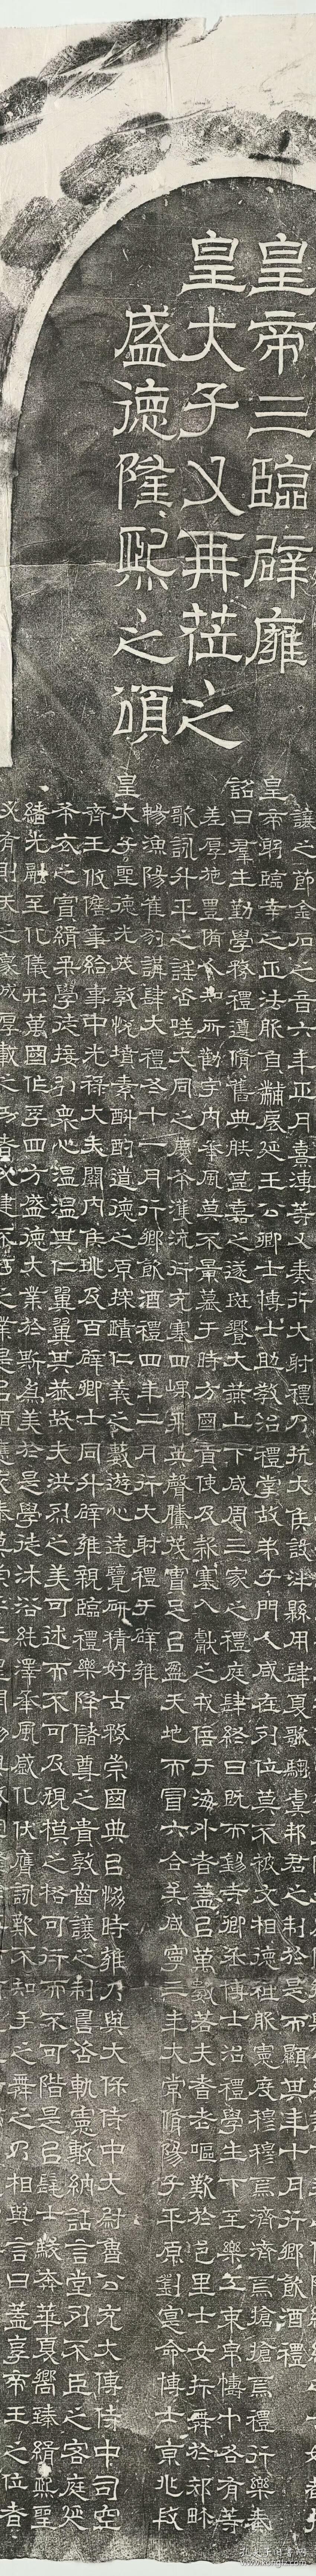 皇帝三臨辟雍
皇大子又再莅之
盛德隆熙之頌
讓之節金石之音六年正月熹溥等又奏行大射禮乃抗大侯設泮縣用肆夏歌騶虞邦君之制於是而顯其年十月行鄉飲酒禮
皇帝躬臨幸之正法服負黼扆延王公卿士博士助教治禮掌故弟子門人咸在列位莫不被文相德祗服憲度穆穆焉濟濟焉搶搶焉禮行樂奏
詔曰羣生勤學務禮遵脩舊典朕甚嘉之遂班饗大燕上下咸周三家之禮庭肆終日既而錫寺卿丞博士治禮學生下至樂工束帛幘巾各有等
差厚施豐備人知所勸宇內承風莫不景慕于時方國貢使及款塞入獻之戎倍于海外者蓋以萬數若夫耆老嘔歎於邑里士女抃舞於郊畛
歌詠升平之謠咨嗟大同之慶布濩流衍充塞四嵎飛英聲騰茂實足以盈天地而冒六合矣咸寧三年大常脩陽子平原劉寔命博士京兆段
暢漁陽崔豹講肆大禮冬十一月行鄉飲酒禮四年二月行大射禮于辟雍
皇大子聖德光茂敦悅墳素斟酌道德之原探賾仁義之藪遊心遠覽研精好古務崇國典以協時雍乃與大保侍中大尉魯公充大傅侍中司空
齊王攸詹事給事中光祿大夫關內侯珧及百辟卿士同升辟雍親臨禮樂降儲尊之貴敦齒讓之制疇咨軌憲敷納話言堂列不臣之客庭延
布衣之賓緝柔學徒接引衆心温温其仁翼翼其恭故夫洪烈之美可述而不可及規模之格可行而不可階是以髦士駿奔華夏嚮臻緝熙聖
緒光融至化儀形萬國作孚四方盛德大業於斯為美於是學徒沐浴純澤承風感化伏膺詠歎不知手之舞之乃相與言曰蓋享帝王之位者